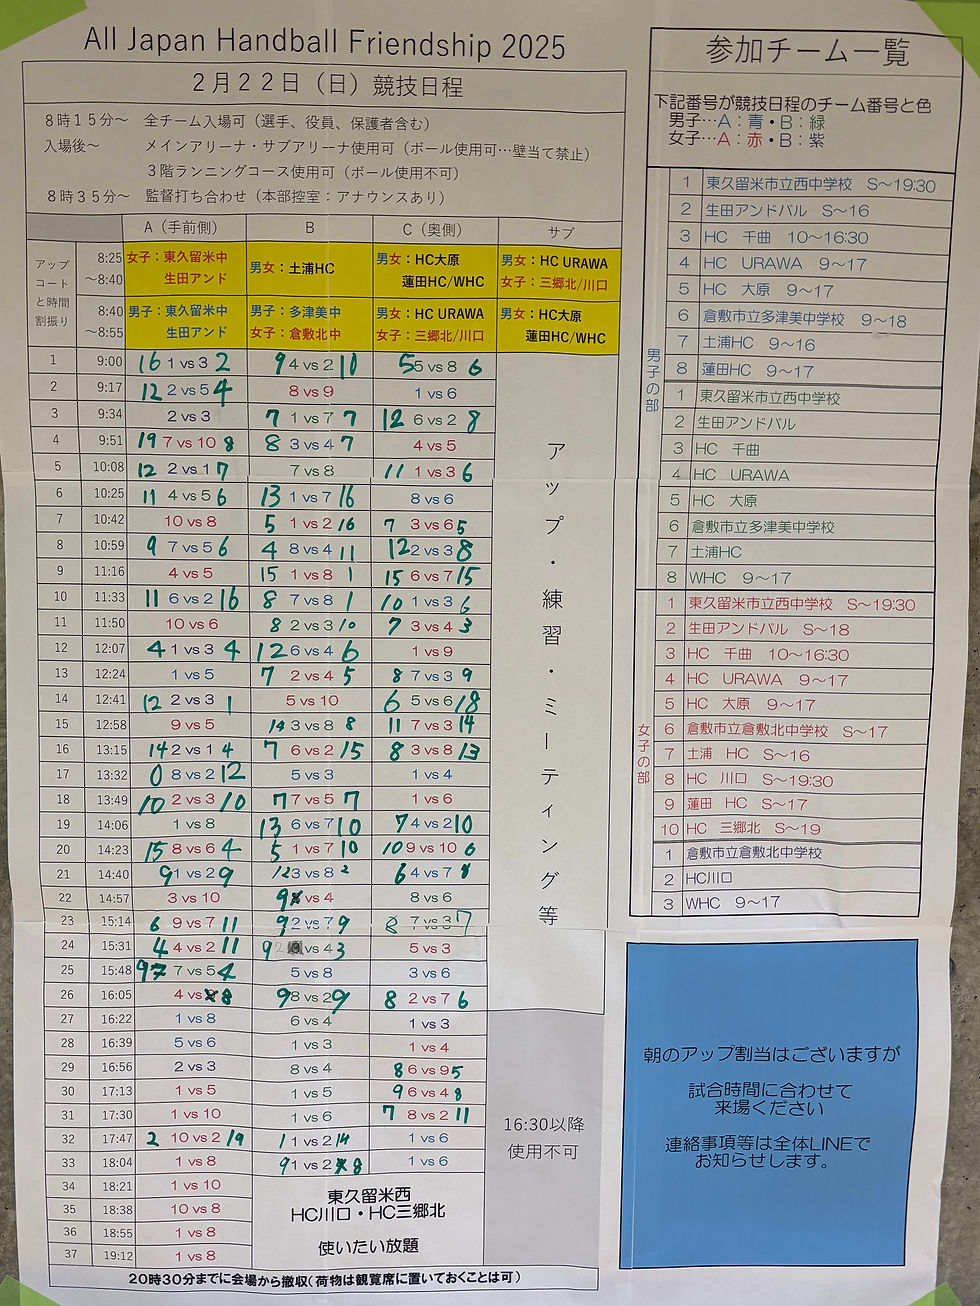 All Japan Handball Friendship 2025
2月22日（日）競技日程
8時15分～　全チーム入場可（選手、役員、保護者含む）
入場後～　メインアリーナ・サブアリーナ使用可（ボール使用可…壁当て禁止）
3階ランニングコース使用可（ボール使用不可）
8時35分～　監督打ち合わせ（本部控室：アナウンスあり）
A（手前側） B C（奥側） サブ
アップコートと時間割振り
8:25～8:40 女子：東久留米中 生田アンド 男女：土浦HC 男女：HC大原 蓮田HC/WHC 男女：HC URAWA 女子：三郷北/川口
8:40～8:55 男子：東久留米中 生田アンド 男子：多津美中 女子：倉敷北中 男女：HC URAWA 女子：三郷北/川口 男女：HC大原 蓮田HC/WHC
1 9:00 16 1 vs 3 2 9 4 vs 2 10 5 5 vs 8 6
2 9:17 12 2 vs 5 4 8 vs 9 1 vs 6
3 9:34 2 vs 3 7 1 vs 7 7 12 6 vs 2 8
4 9:51 19 7 vs 10 8 8 3 vs 4 7 4 vs 5
5 10:08 12 2 vs 1 7 7 vs 8 11 1 vs 3 6
6 10:25 11 4 vs 5 6 13 1 vs 7 16 8 vs 6
7 10:42 10 vs 8 5 1 vs 2 16 7 3 vs 6 5
8 10:59 9 7 vs 5 6 4 8 vs 4 11 12 2 vs 3 8
9 11:16 4 vs 5 15 1 vs 8 1 15 6 vs 7 15
10 11:33 11 6 vs 2 16 8 7 vs 8 1 10 1 vs 3 6
11 11:50 10 vs 6 8 2 vs 3 10 7 3 vs 4 3
12 12:07 4 1 vs 3 4 12 6 vs 4 6 1 vs 9
13 12:24 1 vs 5 7 2 vs 4 5 8 7 vs 3 9
14 12:41 12 2 vs 3 1 5 vs 10 6 5 vs 6 18
15 12:58 9 vs 5 14 3 vs 8 8 11 7 vs 3 14
16 13:15 14 2 vs 1 4 7 6 vs 2 15 8 3 vs 8 13
17 13:32 0 8 vs 2 12 5 vs 3 1 vs 4
18 13:49 10 2 vs 3 10 7 7 vs 5 7 1 vs 6
19 14:06 1 vs 8 13 6 vs 7 10 7 4 vs 2 10
20 14:23 15 8 vs 6 4 5 1 vs 7 10 10 9 vs 10 6
21 14:40 9 1 vs 2 9 12 3 vs 8 2 6 4 vs 7 8
22 14:57 3 vs 10 9 vs 4 8 vs 6
23 15:14 6 9 vs 7 11 9 2 vs 7 9 7 vs 3 7
24 15:31 4 4 vs 2 11 9 vs 4 3 5 vs 3
25 15:48 9 7 vs 5 4 5 vs 8 3 vs 6
26 16:05 4 vs 8 9 8 vs 2 9 8 2 vs 7 6
27 16:22 1 vs 8 6 vs 4 1 vs 3
28 16:39 5 vs 6 1 vs 3 1 vs 4
29 16:56 2 vs 3 8 vs 4 8 6 vs 9 5
30 17:13 1 vs 5 1 vs 5 9 6 vs 4 8
31 17:30 1 vs 10 1 vs 6 7 8 vs 2 11
32 17:47 2 10 vs 2 19 1 1 vs 2 14 1 vs 6
33 18:04 1 vs 8 9 1 vs 2 8 1 vs 6
34 18:21 1 vs 10
35 18:38 10 vs 8
36 18:55 1 vs 8
37 19:12 1 vs 8
東久留米西
HC川口・HC三郷北
使いたい放題
アップ・練習・ミーティング等
16:30以降
使用不可
20時30分までに会場から撤収（荷物は観覧席に置いておくことは可）
参加チーム一覧
下記番号が競技日程のチーム番号と色
男子…A：青・B：緑
女子…A：赤・B：紫
男子の部
1 東久留米市立西中学校　S～19:30
2 生田アンドバル　S～16
3 HC　千曲　10～16:30
4 HC　URAWA　9～17
5 HC　大原　9～17
6 倉敷市立多津美中学校　9～18
7 土浦HC　9～16
8 蓮田HC　9～17
1 東久留米市立西中学校
2 生田アンドバル
3 HC　千曲
4 HC　URAWA
5 HC　大原
6 倉敷市立多津美中学校
7 土浦HC
8 WHC　9～17
女子の部
1 東久留米市立西中学校　S～19:30
2 生田アンドバル　S～18
3 HC　千曲　10～16:30
4 HC　URAWA　9～17
5 HC　大原　9～17
6 倉敷市立倉敷北中学校　S～17
7 土浦　HC　S～16
8 HC　川口　S～19:30
9 蓮田　HC　S～17
10 HC　三郷北　S～19
1 倉敷市立倉敷北中学校
2 HC川口
3 WHC　9～17
朝のアップ割当はございますが
試合時間に合わせて
来場ください
連絡事項等は全体LINEで
お知らせします。